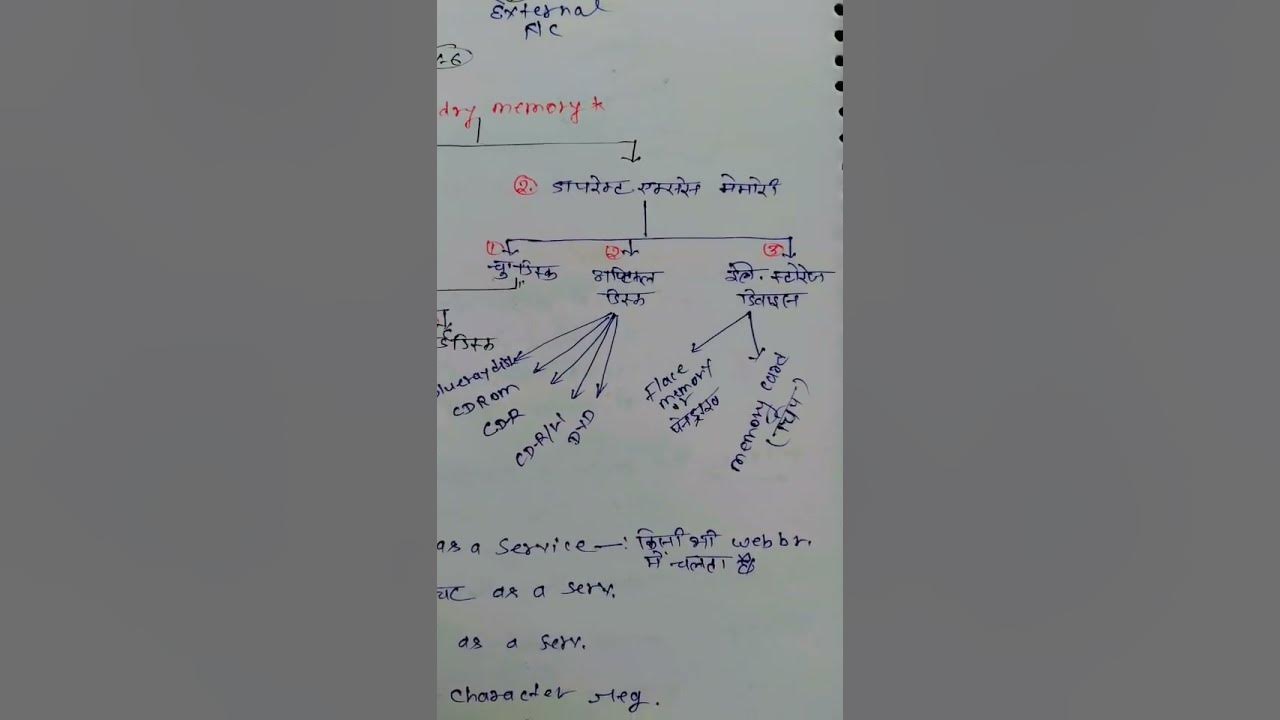 External
A/C
-6
dry memory *
2. डायरेक्ट एक्सेस मेमोरी
1 2 3
चु. डिस्क
ऑप्टिकल
डिस्क
इले. स्टोरेज
डिवाइस
डिस्क
Blueray disk
CD Rom
CD-R
CD-R/W
DVD
Flace
memory
or
पेनड्राइव
memory card
(चिप)
as a Service —: किसी भी webbr.
में चलता है
as a serv.
as a serv.
character reg.